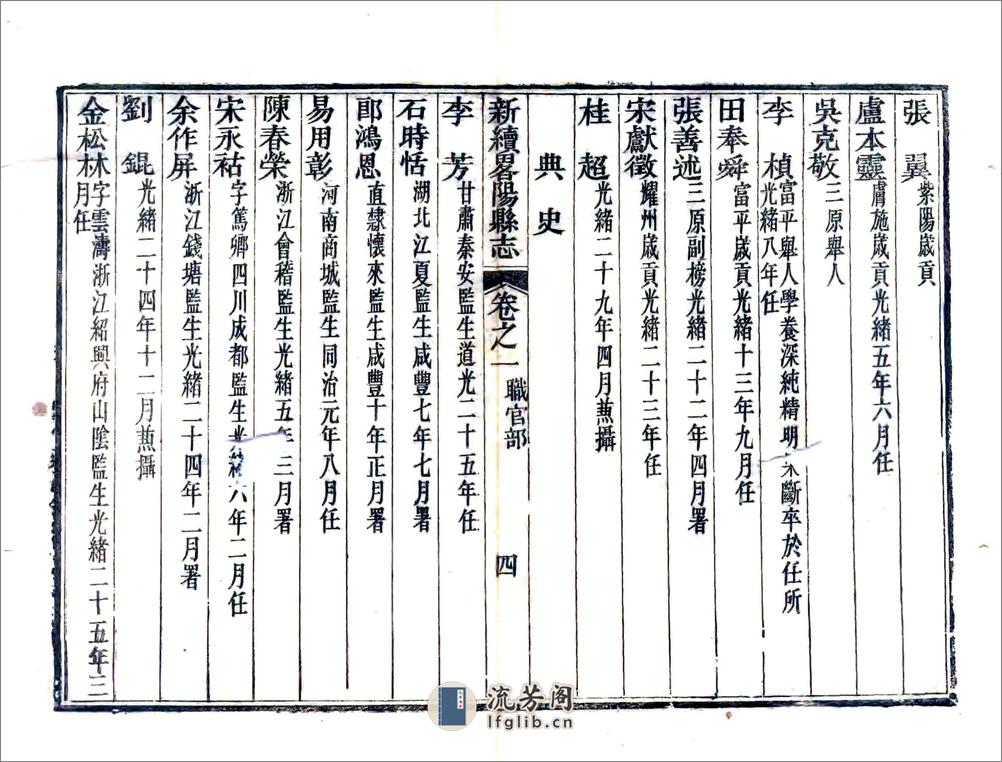 張翼紫陽歲貢
盧本靈膚施歲貢光緒五年六月任
吳克敬三原舉人
李楨富平舉人學養深純精明斷卒於任所
光緒八年任
田奉舜富平歲貢光緒十三年九月任
張善述三原副榜光緒二十二年四月署
宋獻徵耀州歲貢光緒二十三年任
桂超光緒二十九年四月兼攝
典史
新續畧陽縣志 卷之一 職官部 四
李芳甘肅秦安監生道光二十五年任
石時恬湖北江夏監生咸豐七年七月署
郎鴻恩直隸懷來監生咸豐十年正月署
易用彰河南商城監生同治元年八月任
陳春榮浙江會稽監生光緒五年三月署
宋永祜字篤卿四川成都監生光緒六年二月任
余作屏浙江錢塘監生光緒二十四年二月署
劉錕光緒二十四年十二月兼攝
金松林字雲濤浙江紹興府山陰監生光緒二十五年三
月任
流芳阁
lfglib.cn